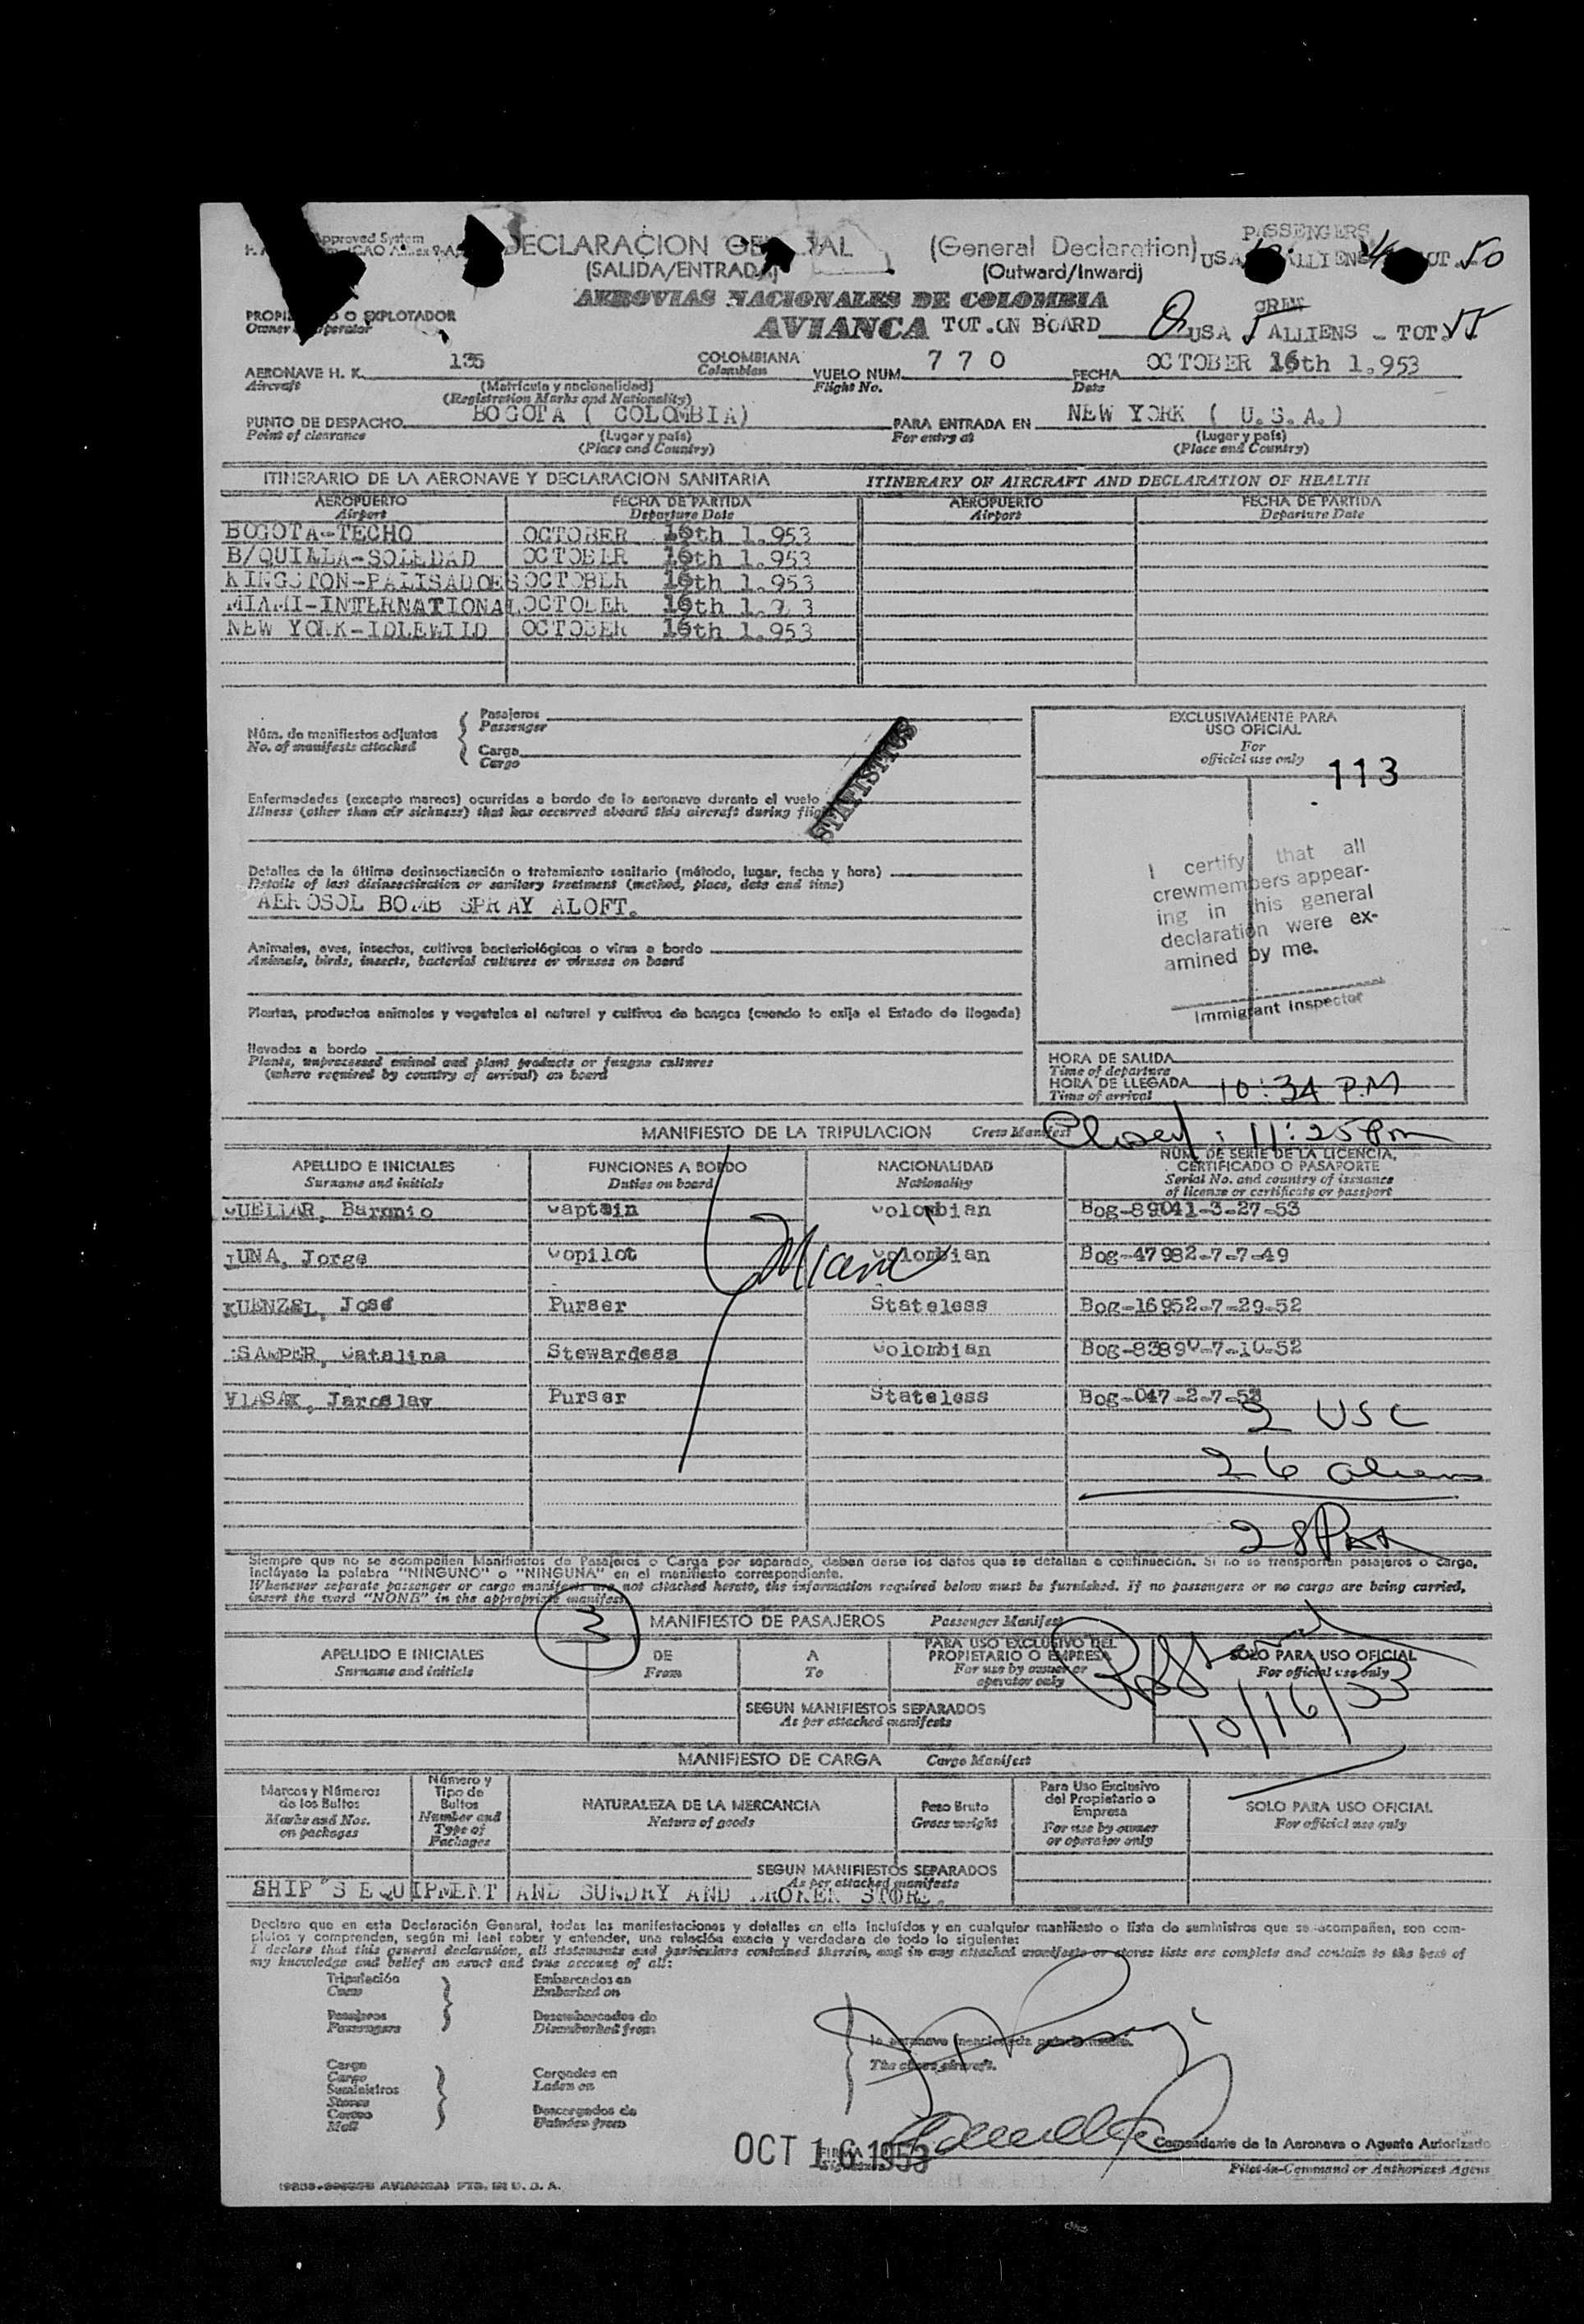 Approved System
DECLARACION GE AL (General Declaration) PASSENGERS
(SALIDA/ENTRADA) (Outward/Inward) USA ALLIENS TOT. 50
AEROVIAS NACIONALES DE COLOMBIA
CREW
PROPI O O EXPLOTADOR
Owner Operator
AVIANCA TOT.ON BOARD USA 5 ALLIENS - TOT. 55
AERONAVE H. K. 135 COLOMBIANA VUELO NUM. 7 7 0 FECHA OCTOBER 16th 1.953
Aircraft (Matrícula y nacionalidad) Colombian Flight No. Date
(Registration Marks and Nationality)
PUNTO DE DESPACHO BOGOTA ( COLOMBIA) PARA ENTRADA EN NEW YORK ( U.S.A.)
Point of clearance (Lugar y país) For entry at (Lugar y país)
(Place and Country) (Place and Country)
ITINERARIO DE LA AERONAVE Y DECLARACION SANITARIA ITINERARY OF AIRCRAFT AND DECLARATION OF HEALTH
AEROPUERTO FECHA DE PARTIDA AEROPUERTO FECHA DE PARTIDA
Airport Departure Date Airport Departure Date
BOGOTA-TECHO OCTOBER 16th 1.953
B/QUILLA-SOLEDAD OCTOBER 16th 1.953
KINGSTON-PALISADOES OCTOBER 16th 1.953
MIAMI-INTERNATIONAL OCTOBER 16th 1.953
NEW YORK-IDLEWILD OCTOBER 16th 1.953
Núm. de manifiestos adjuntos
No. of manifests attached
Pasajeros
Passenger
Carga
Cargo
STATISTICS
EXCLUSIVAMENTE PARA
USO OFICIAL
For
official use only
113
Enfermedades (excepto mareos) ocurridas a bordo de la aeronave durante el vuelo
Illness (other than air sickness) that has occurred aboard this aircraft during flig
Detalles de la última desinsectización o tratamiento sanitario (método, lugar, fecha y hora)
Details of last disinsectization or sanitary treatment (method, place, date and time)
AEROSOL BOMB SPRAY ALOFT.
Animales, aves, insectos, cultivos bacteriológicos o virus a bordo
Animals, birds, insects, bacterial cultures or viruses on board
Plantas, productos animales y vegetales al natural y cultivos de hongos (cuando lo exija el Estado de llegada)
llevados a bordo
Plants, unprocessed animal and plant products or fungus cultures
(where required by country of arrival) on board
I certify that all
crewmembers appear-
ing in this general
declaration were ex-
amined by me.
Immigrant Inspector
HORA DE SALIDA
Time of departure
HORA DE LLEGADA 10:34 P.M
Time of arrival
MANIFIESTO DE LA TRIPULACION Crew Manifest Closed: 11:25 Pm
APELLIDO E INICIALES FUNCIONES A BORDO NACIONALIDAD NUM. DE SERIE DE LA LICENCIA,
CERTIFICADO O PASAPORTE
Surname and initials Duties on board Nationality Serial No. and country of issuance
of license or certificate or passport
CUELLAR, Baronio Captain Colombian Bog-89041-3-27-53
LUNA, Jorge Copilot Colombian Bog-47982-7-7-49
Miami
KUENZEL, José Purser Stateless Bog-16952-7-29-52
SAMPER, Catalina Stewardess Colombian Bog-83890-7-10-52
VLASAK, Jaroslav Purser Stateless Bog-047-2-7-53
2 USC
26 aliens
28 Pax
Siempre que no se acompañen Manifiestos de Pasajeros o Carga por separado, deben darse los datos que se detallan a continuación. Si no se transportan pasajeros o carga,
inclúyase la palabra "NINGUNO" o "NINGUNA" en el manifiesto correspondiente.
Whenever separate passenger or cargo manifests are not attached hereto, the information required below must be furnished. If no passengers or no cargo are being carried,
insert the word "NONE" in the appropriate manifest
3
MANIFIESTO DE PASAJEROS Passenger Manifest
APELLIDO E INICIALES DE A PARA USO EXCLUSIVO DEL
PROPIETARIO O EMPRESA SOLO PARA USO OFICIAL
Surname and initials From To For use by owner or
operator only For official use only
SEGUN MANIFIESTOS SEPARADOS
As per attached manifests
10/16/53
MANIFIESTO DE CARGA Cargo Manifest
Marcas y Números
de los Bultos
Marks and Nos.
on packages
Número y
Tipo de
Bultos
Number and
Type of
Packages
NATURALEZA DE LA MERCANCIA
Nature of goods
Peso Bruto
Gross weight
Para Uso Exclusivo
del Propietario o
Empresa
For use by owner
or operator only
SOLO PARA USO OFICIAL
For official use only
SEGUN MANIFIESTOS SEPARADOS
As per attached manifests
SHIP"S EQUIPMENT AND SUNDRY AND BROKEN STORE.
Declaro que en esta Declaración General, todas las manifestaciones y detalles en ella incluídos y en cualquier manifiesto o lista de suministros que se acompañen, son com-
pletos y comprenden, según mi leal saber y entender, una relación exacta y verdadera de todo lo siguiente:
I declare that this general declaration, all statements and particulars contained therein, and in any attached manifests or stores lists are complete and contain to the best of
my knowledge and belief an exact and true account of all:
Tripulación
Crew
Pasajeros
Passengers
Embarcados en
Embarked on
Desembarcados de
Disembarked from
la aeronave mencionada
The above aircraft.
Carga
Cargo
Suministros
Stores
Correo
Mail
Cargados en
Laden on
Descargados de
Unladen from
OCT 16 1953
Comandante de la Aeronave o Agente Autorizado
Pilot-in-Command or Authorized Agent